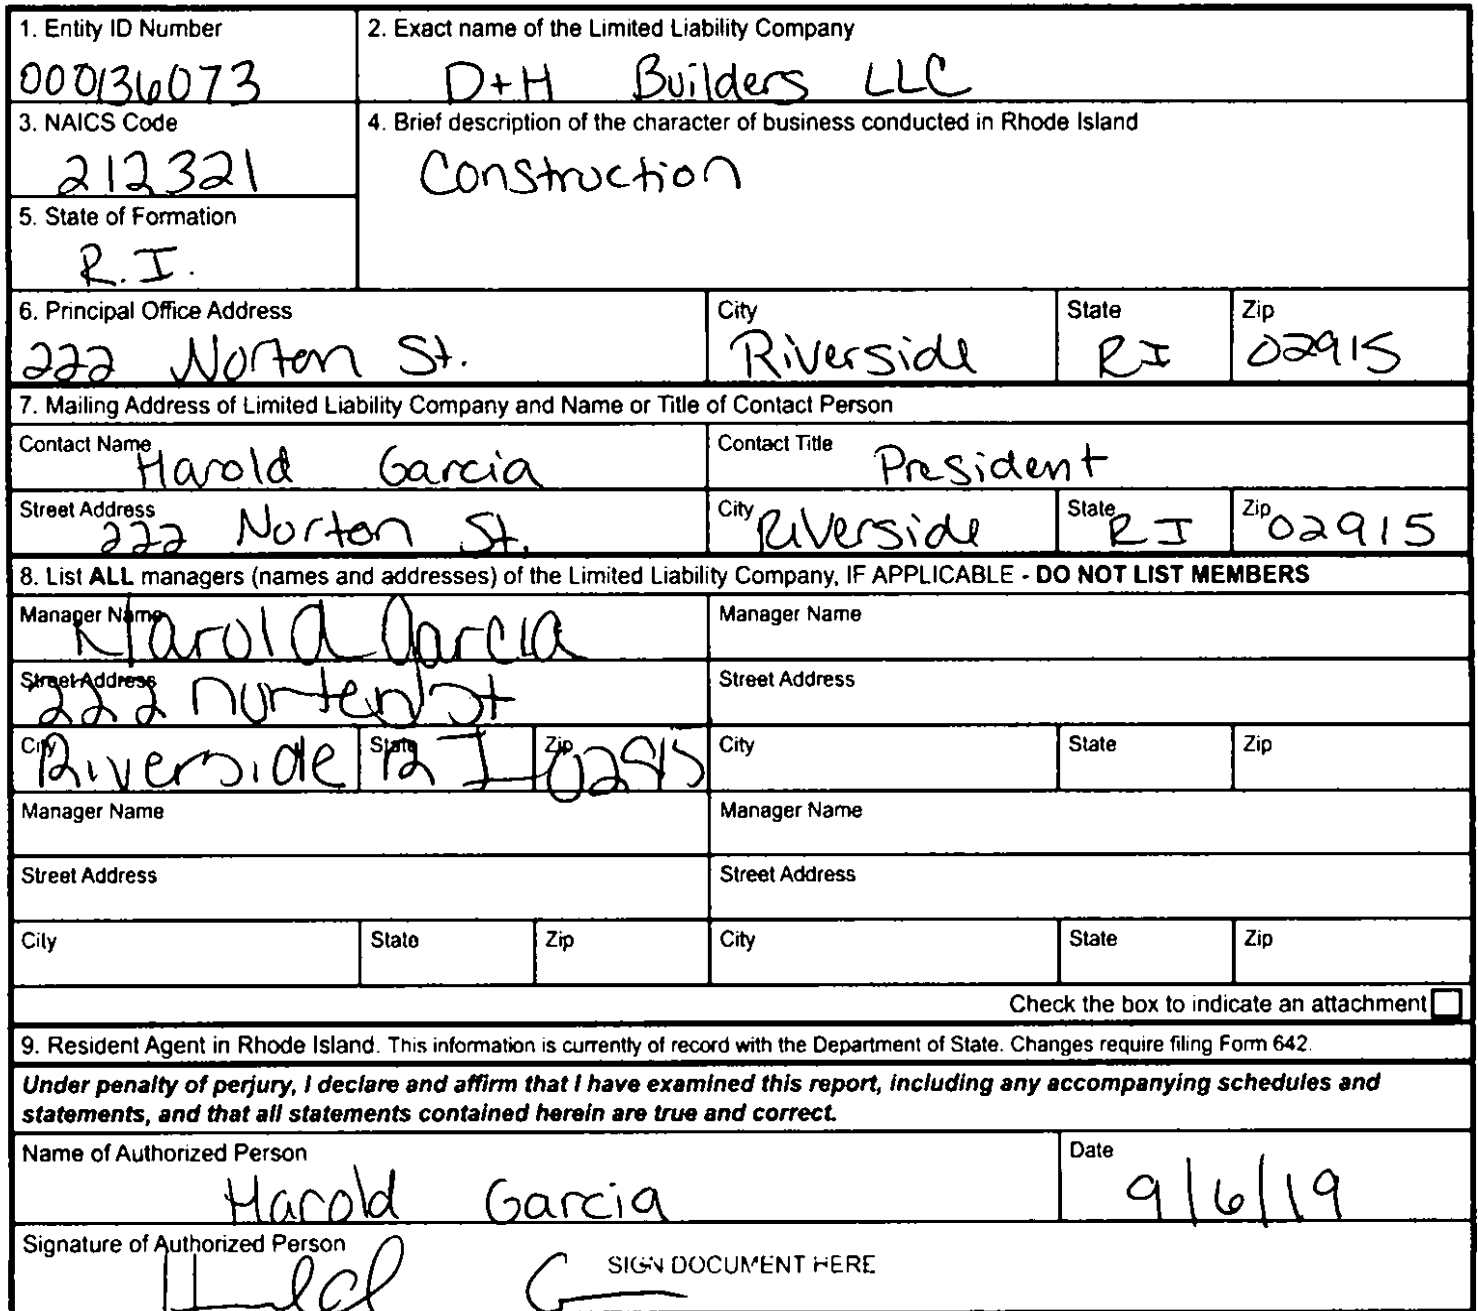 1. Entity ID Number
000136073
2. Exact name of the Limited Liability Company
D+H Builders LLC
3. NAICS Code
212321
4. Brief description of the character of business conducted in Rhode Island
Construction
5. State of Formation
R.I.
6. Principal Office Address
222 Norton St.
City
Riverside
State
RI
Zip
02915
7. Mailing Address of Limited Liability Company and Name or Title of Contact Person
Contact Name
Harold Garcia
Contact Title
President
Street Address
222 Norton St.
City
Riverside
State
RI
Zip
02915
8. List ALL managers (names and addresses) of the Limited Liability Company, IF APPLICABLE - DO NOT LIST MEMBERS
Manager Name
Harold Garcia
Manager Name
Street Address
222 Norton St
Street Address
City
Riverside
State
RI
Zip
02915
City
State
Zip
Manager Name
Manager Name
Street Address
Street Address
City
State
Zip
City
State
Zip
Check the box to indicate an attachment
9. Resident Agent in Rhode Island. This information is currently of record with the Department of State. Changes require filing Form 642.
Under penalty of perjury, I declare and affirm that I have examined this report, including any accompanying schedules and
statements, and that all statements contained herein are true and correct.
Name of Authorized Person
Harold Garcia
Date
9/6/19
Signature of Authorized Person
SIGN DOCUMENT HERE